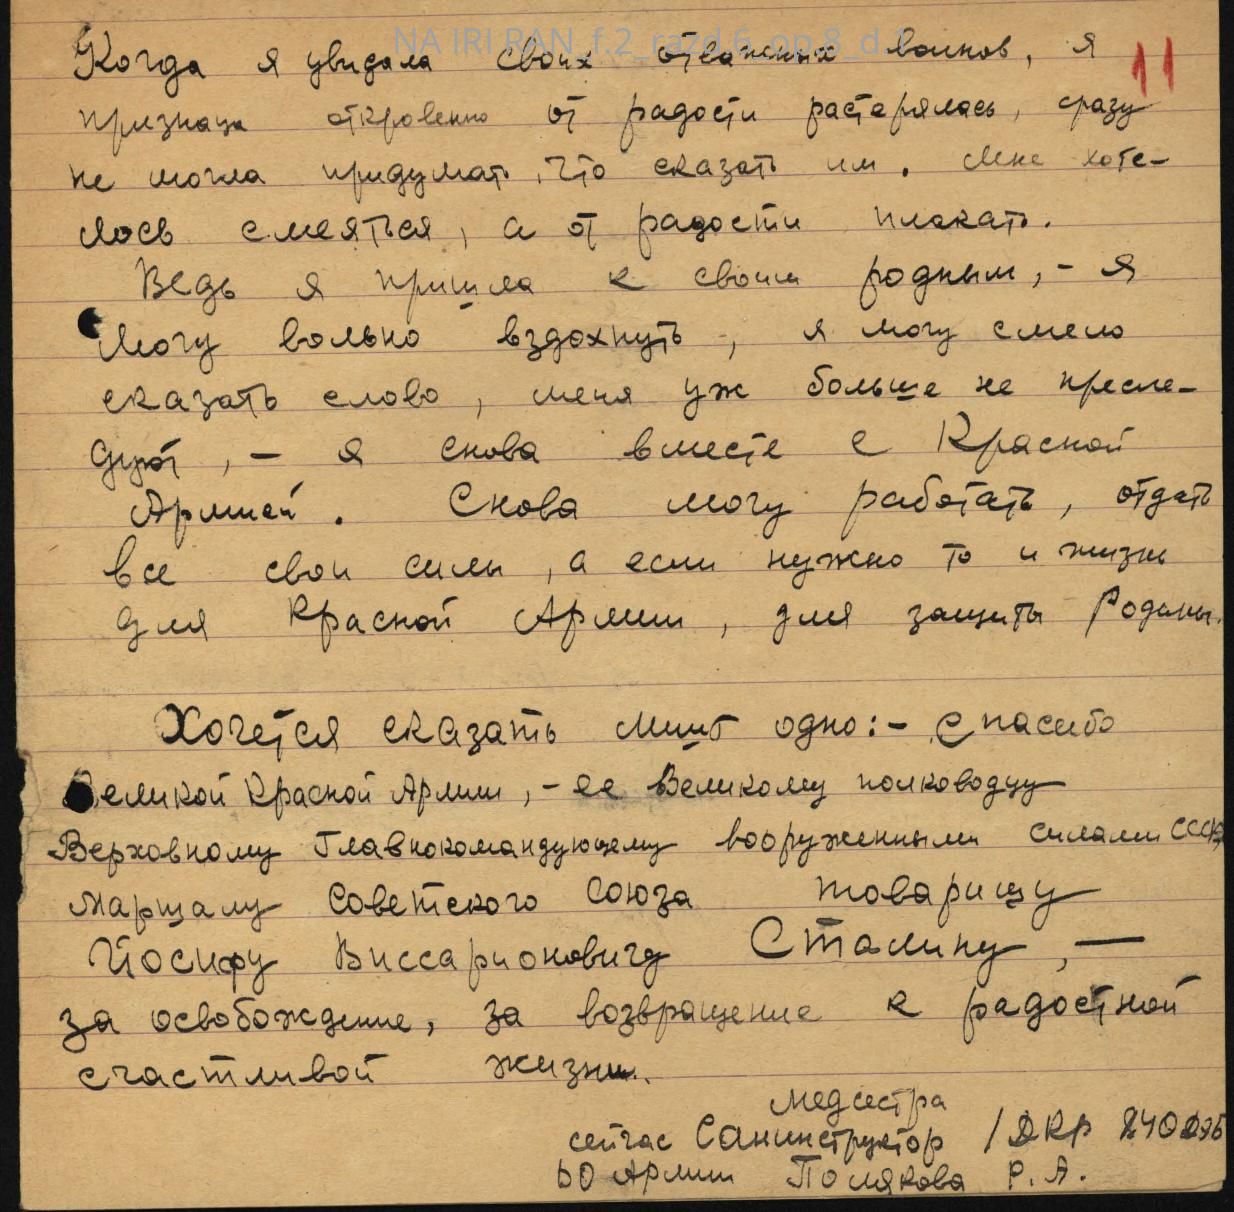 NA IRI RAN_f.2_razd.6_op.8_d.
11
Когда я увидала своих отважных воинов, я
признаца откровенно от радости растерялась, сразу
не могла придумать, что сказать им. Мне хоте-
лось смеяться, а от радости плакать.
Ведь я пришла к своим родным, - я
могу вольно вздохнуть, я могу смело
сказать слово, меня уж больше не пресле-
дуют, - я снова вместе с Красной
Армией. Снова могу работать, отдать
все свои силы, а если нужно то и жизнь
для Красной Армии, для защиты Родины.
Хочется сказать лишь одно: - спасибо
Великой Красной Армии, - ее Великому полководцу
Верховному Главнокомандующему вооруженными силами СССР
Маршалу Советского Союза товарищу
Йосифу Виссарионовичу Сталину, —
за освобождение, за возвращение к радостной
счастливой жизни.
медсестра
сейчас Санинструктор
Армии Полякова Р. А.